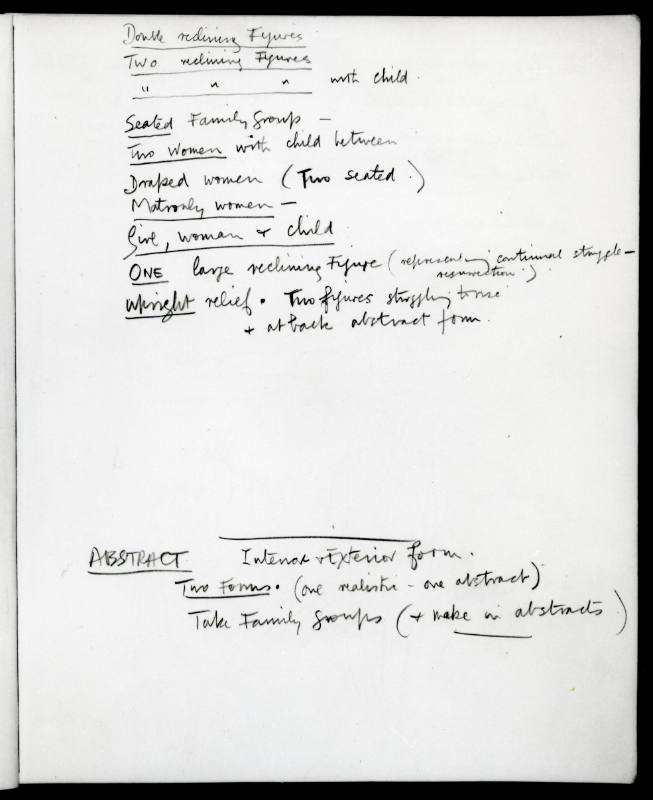 Double reclining Figures
Two reclining Figures
" " " with child.
Seated Family Groups -
Two Women with child between
Draped women (Two seated.)
Matronly women -
Girl, woman + child
ONE large reclining Figure (representing continual struggle -
resurrection.)
Upright relief. Two figures struggling to rise
+ at back abstract form.
ABSTRACT Interior + Exterior form.
Two Forms. (one realistic - one abstract)
Take Family Groups (+ make in abstracts)